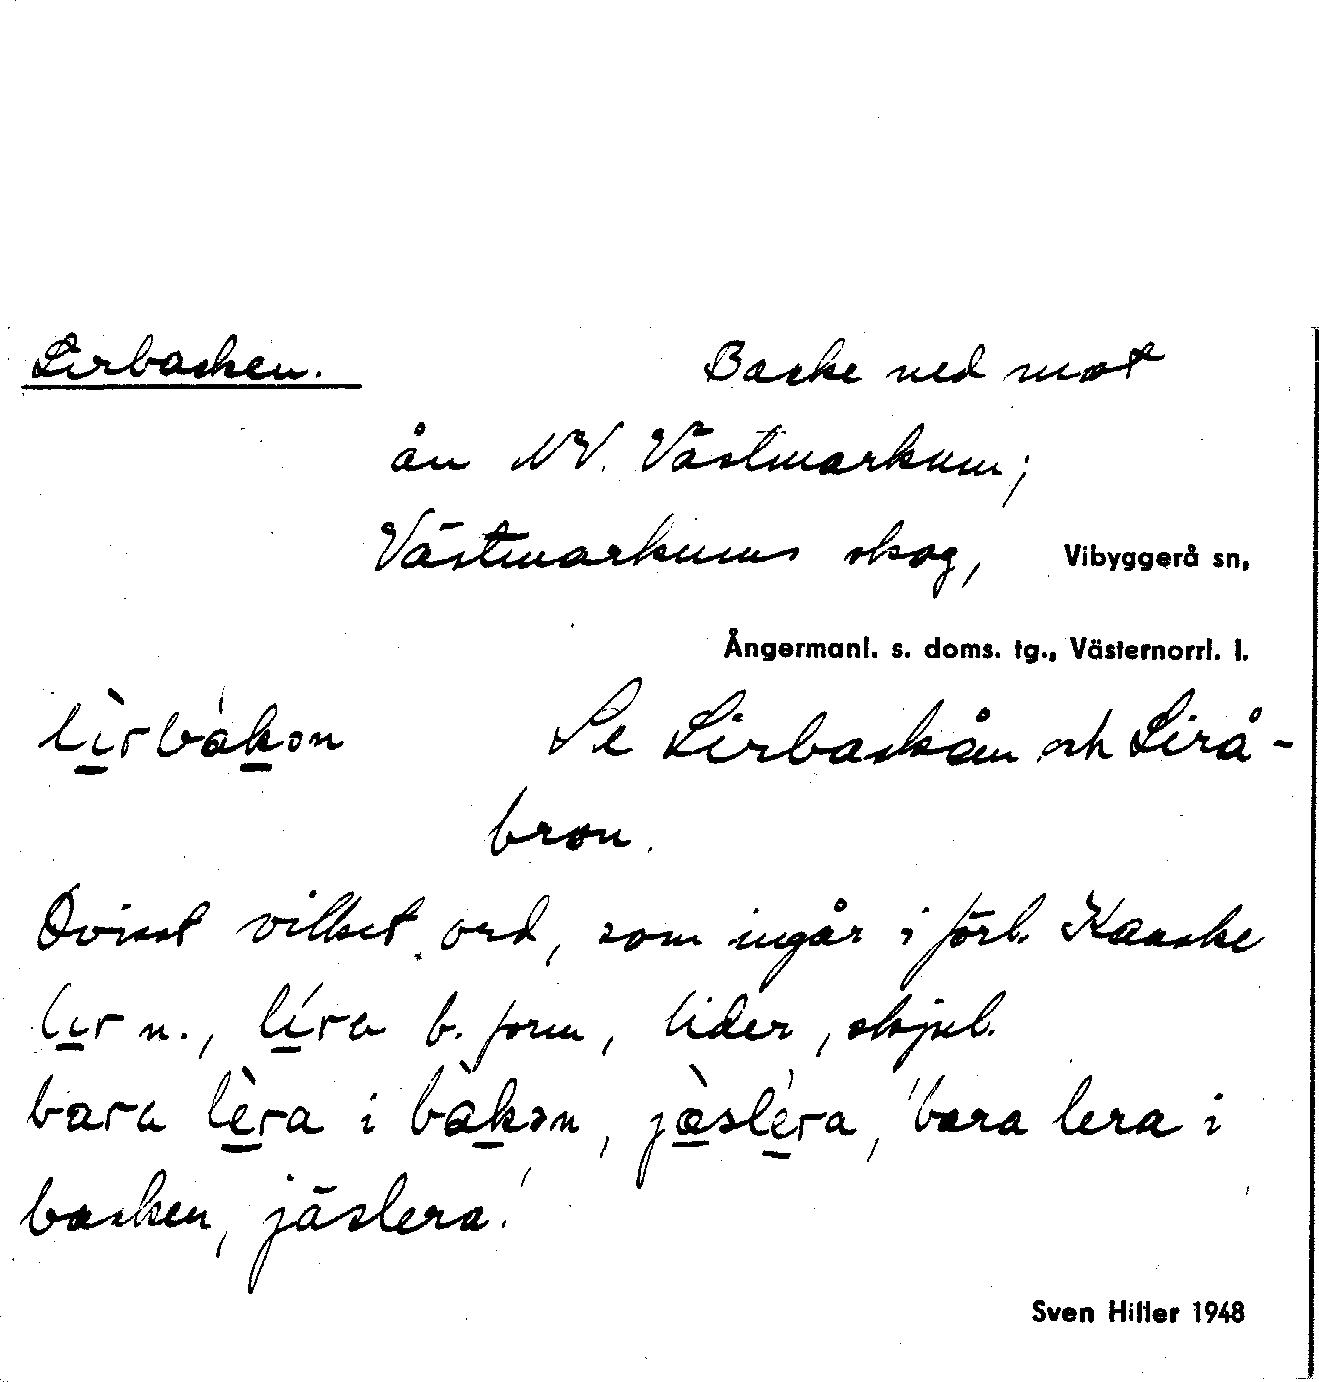 Lirbacken. Backe ned mot
ån NV. Västmarkum;
Västmarkums skog, Vibyggerå sn,
Ångermanl. s. doms. tg., Västernorrl. l.
lìrbákən Se Lirbackån och Lirå-
bron.
Ovisst vilket ord, som ingår i förl. Kanske
lır n., líra b. form, lider, skjul.
bara lèra i bàkən, jæ̀sléra, 'bara lera i
backen, jäslera.'
Sven Hiller 1948